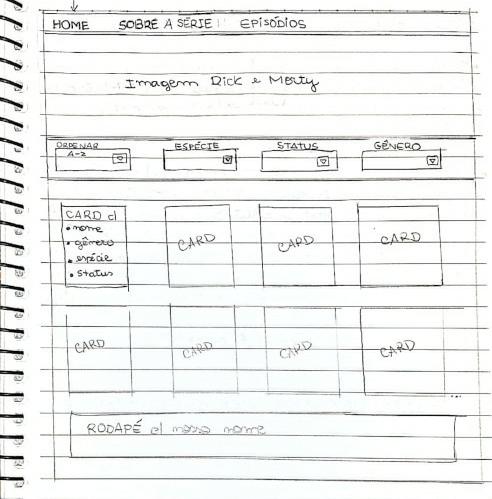 HOME SOBRE A SÉRIE EPISÓDIOS
Imagem Rick e Morty
ORDENAR ESPÉCIE STATUS GÊNERO
A-Z
CARD c/
• nome
• gênero
• espécie
• status
CARD CARD CARD
CARD CARD CARD CARD
...
RODAPÉ c/ nosso nome